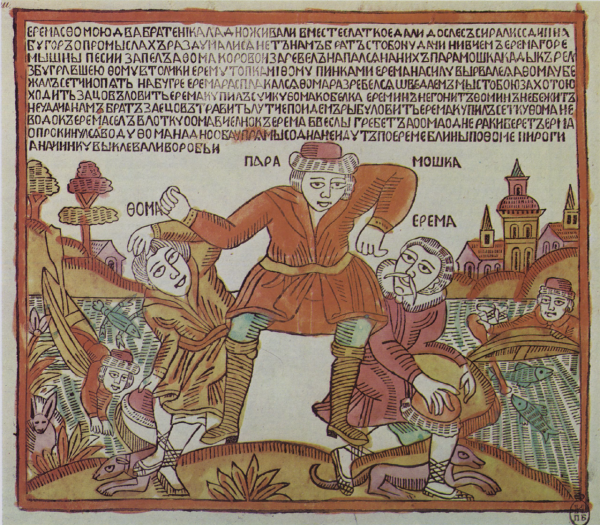 ЕРЕМАСѲОМОЮДВАБРАТЕНІКАЛАДНОЖИВАЛИВМЕСТЕСЛАТКОЕДАЛИДОСЛЕСЪ
БУГОРЪОПРОМЫСЛАХЪРАЗДУМАЛИСАНЕТЪНАМЪБРАТЪСТОБОИУДАЧИНІВЧЕМЪЕРЕМАГОРЕ
МЫШНЫПЕСНИЗАПЕЛЪАѲОМАКОРОВОИЗАРЕВЕЛЪНАПАЛСАНАНИХЪПАРАМОШКАКАДЫКЪРЕЛ
ЗБУГРАВШЕЮѲОМУВТОЛКИЕРЕМУТОПКАМІѲОМУПИНКАМИЕРЕМАНАСИЛУВЫРВАЛСААѲОМАУБЕ
ЖАЛЪСЕТЧІОПАТЬНАБУГРЕЕРЕМАРАСПЛАКАЛСАѲОМАРАЗРЕВЕЛСАШВЕДАЕМЪМЫСТОБОЮЗАХОТОЮ
ХОДИТЬЗАИЦОВЪЛОВИТЬЕРЕМАКУПИЛЪСУЧКУѲОМАКОБЕЛКАЕРЕМИНЪНЕГОНИТЪѲОМИНЪНЕБЕЖИТЪ
НЕУДИАНАМЪБРАТЪЗАЕЦОВЪТРАВИТЬПУТЧЕПОИДЕМЪРЫБУЛОВИТЬЕРЕМАКУПИЛЪСЕТКУѲОМАНЕ
ВОДОКЪЕРЕМАСЕЛЪВЛОТКУѲОМАВЧЕЛНОКЪЕРЕМАВВЕСЛЫГРЕБЕТЪАѲОМАОДНЕРАКИБЕРЕТЪЕРМА
ОПРОКИНУЛСАВОДУѲОМАНАДНОѲОБАУПРАМЫСОДНАНЕИДУТЪПОЕРЕМЕБЛИНЫПОѲОМЕПИРОГИ
АНАЧИНКУВЫКЛЕВАЛИВОРОБЬИ
ПАРА МОШКА
ѲОМА
ЕРЕМА